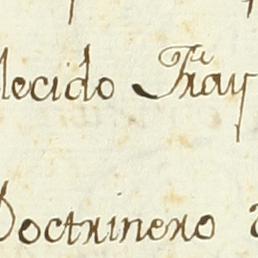 lecido Fray
Doctrinero